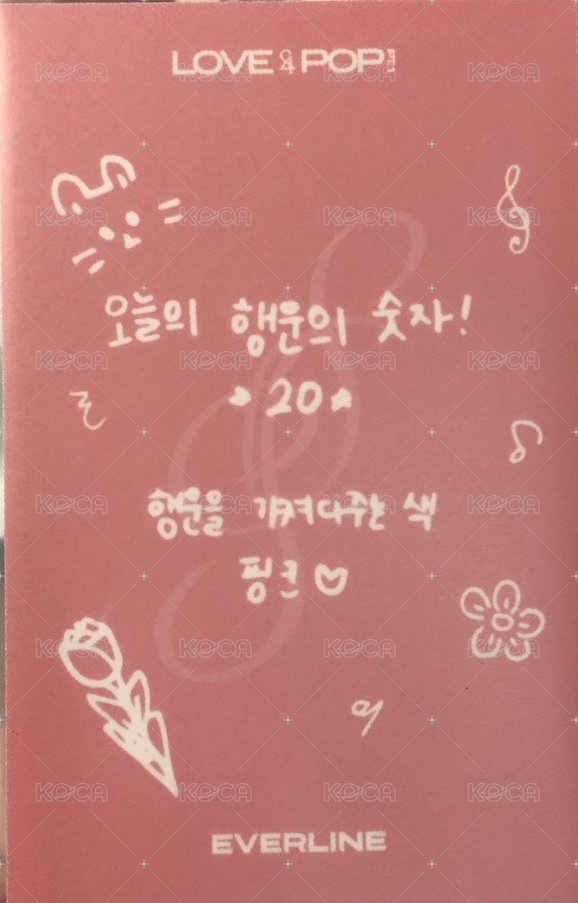 LOVE or POP PT.1
오늘의 행운의 숫자!
20
행운을 가져다주는 색
핑크
EVERLINE
KOCA